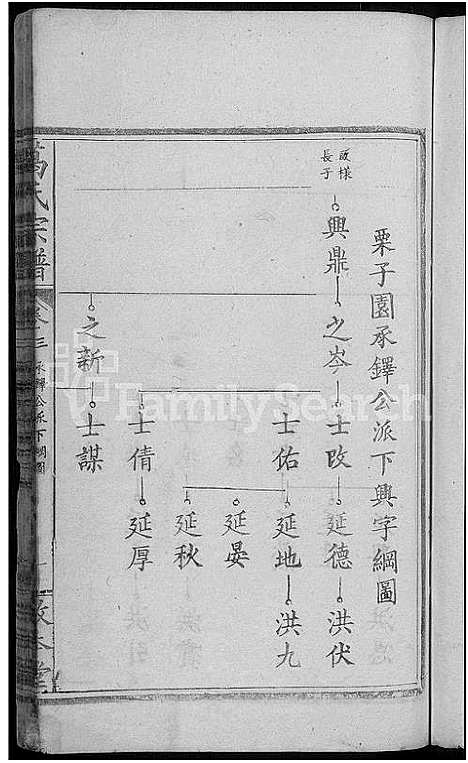 栗子園承鐸公派下興字綱圖
政様
長子
興鼎
之岑
士改
延德
洪伏
士佑
延地
洪九
延晏
延秋
士倩
延厚
之新
士謀
萬氏宗譜
承鐸公派下綱圖
FamilySearch